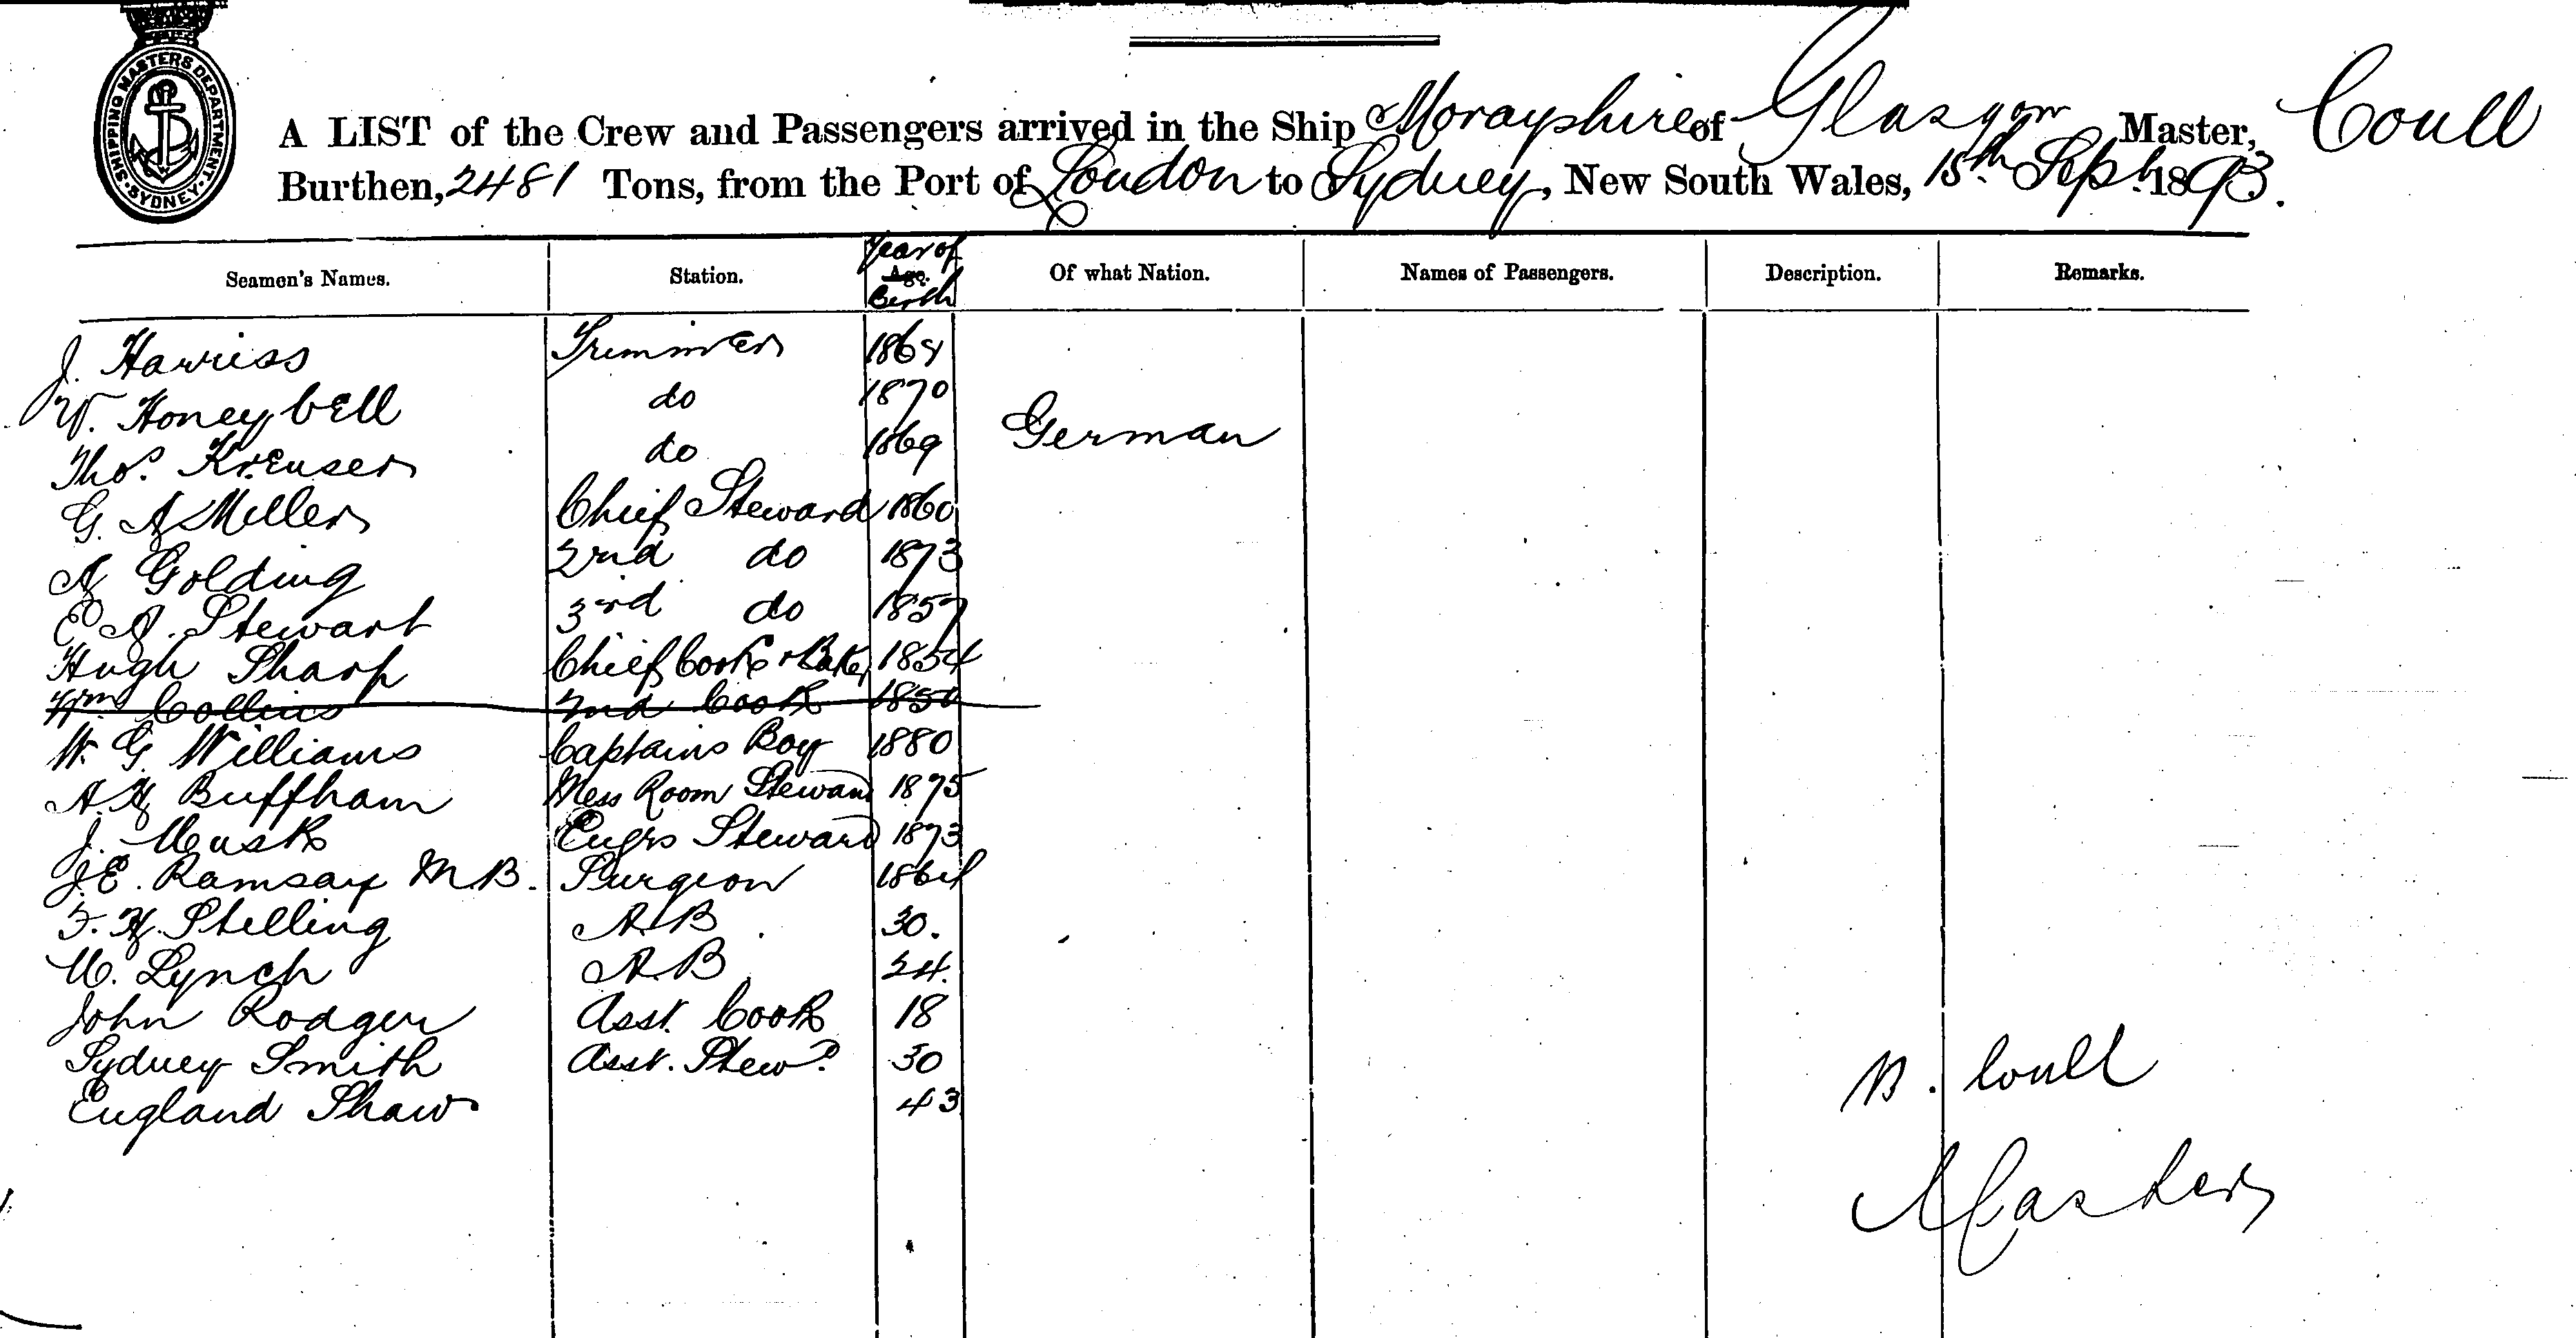 SHIPPING MASTERS DEPARTMENT · SYDNEY ·
A LIST of the Crew and Passengers arrived in the Ship Morayshire of Glasgow Master, Coull
Burthen, 2481 Tons, from the Port of London to Sydney, New South Wales, 15th Sept. 1893.
Seamen's Names. Station. Year of Age. Birth Of what Nation. Names of Passengers. Description. Remarks.
J. Harriss Trimmer 1864
W. Honeybell do 1870
Thos. Kreuser do 1869 German
G. A Miller Chief Steward 1860
A Golding 2nd do 1873
E A. Stewart 3rd do 1857
Hugh Sharp Chief Cook & Baker 1854
Wm Collins 2nd Cook 1850
W. G Williams Captains Boy 1880
A. H Buffham Mess Room Steward 1875
J. Musk Engrs Steward 1873
J. E. Ramsay M.B. Surgeon 1864
F. H. Stelling AB 30.
M. Lynch AB 24.
John Rodger Asst. Cook 18
Sydney Smith Asst. Stewd. 30
England Shaw 43
Coull
Master